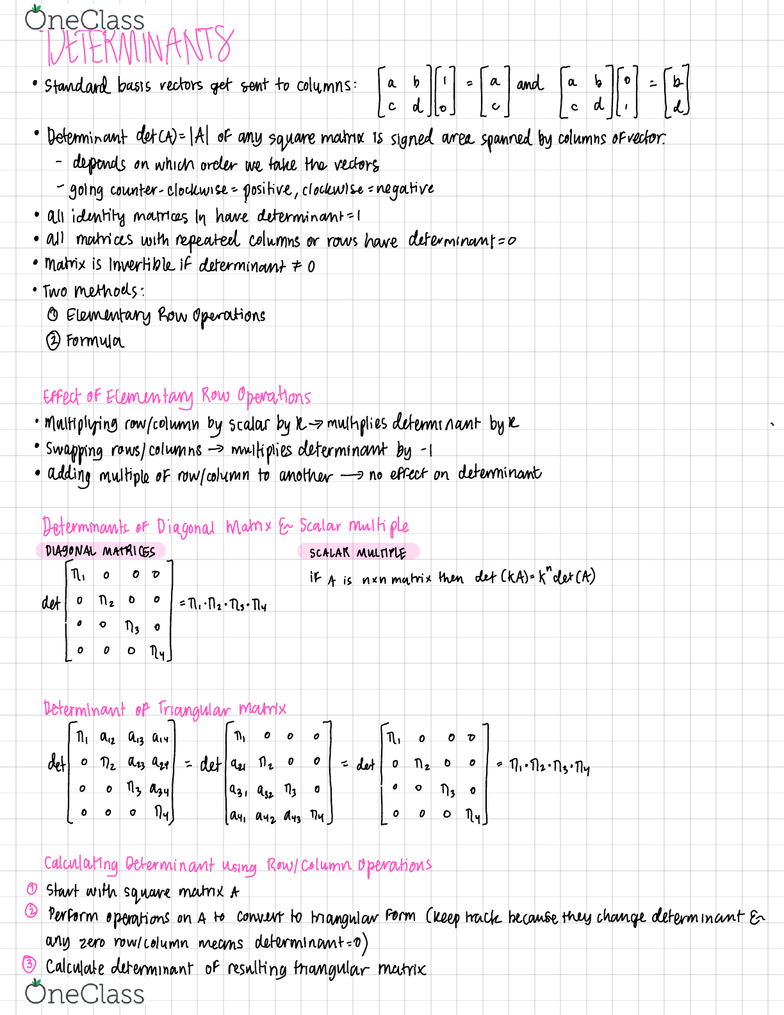 OneClass
DETERMINANTS
• Standard basis vectors get sent to columns: [a b; c d][1; 0] = [a; c] and [a b; c d][0; 1] = [b; d]
• Determinant det(A) = |A| of any square matrix is signed area spanned by columns of vector.
- depends on which order we take the vectors
- going counter-clockwise = positive, clockwise = negative
• all identity matrices In have determinant = 1
• all matrices with repeated columns or rows have determinant = 0
• Matrix is invertible if determinant ≠ 0
• Two methods:
① Elementary Row Operations
② Formula
Effect of Elementary Row Operations
• Multiplying row/column by scalar by k → multiplies determinant by k
• Swapping rows/columns → multiplies determinant by -1
• adding multiple of row/column to another → no effect on determinant
Determinants of Diagonal Matrix & Scalar multiple
DIAGONAL MATRICES SCALAR MULTIPLE
if A is n×n matrix then det (kA) = kⁿdet(A)
det [λ₁ 0 0 0; 0 λ₂ 0 0; 0 0 λ₃ 0; 0 0 0 λ₄] = λ₁·λ₂·λ₃·λ₄
Determinant of Triangular matrix
det [λ₁ a₁₂ a₁₃ a₁₄; 0 λ₂ a₂₃ a₂₄; 0 0 λ₃ a₃₄; 0 0 0 λ₄] = det [λ₁ 0 0 0; a₂₁ λ₂ 0 0; a₃₁ a₃₂ λ₃ 0; a₄₁ a₄₂ a₄₃ λ₄] = det [λ₁ 0 0 0; 0 λ₂ 0 0; 0 0 λ₃ 0; 0 0 0 λ₄] = λ₁·λ₂·λ₃·λ₄
Calculating Determinant using Row/Column Operations
① Start with square matrix A
② Perform operations on A to convert to triangular form (keep track because they change determinant &
any zero row/column means determinant=0)
③ Calculate determinant of resulting triangular matrix
OneClass